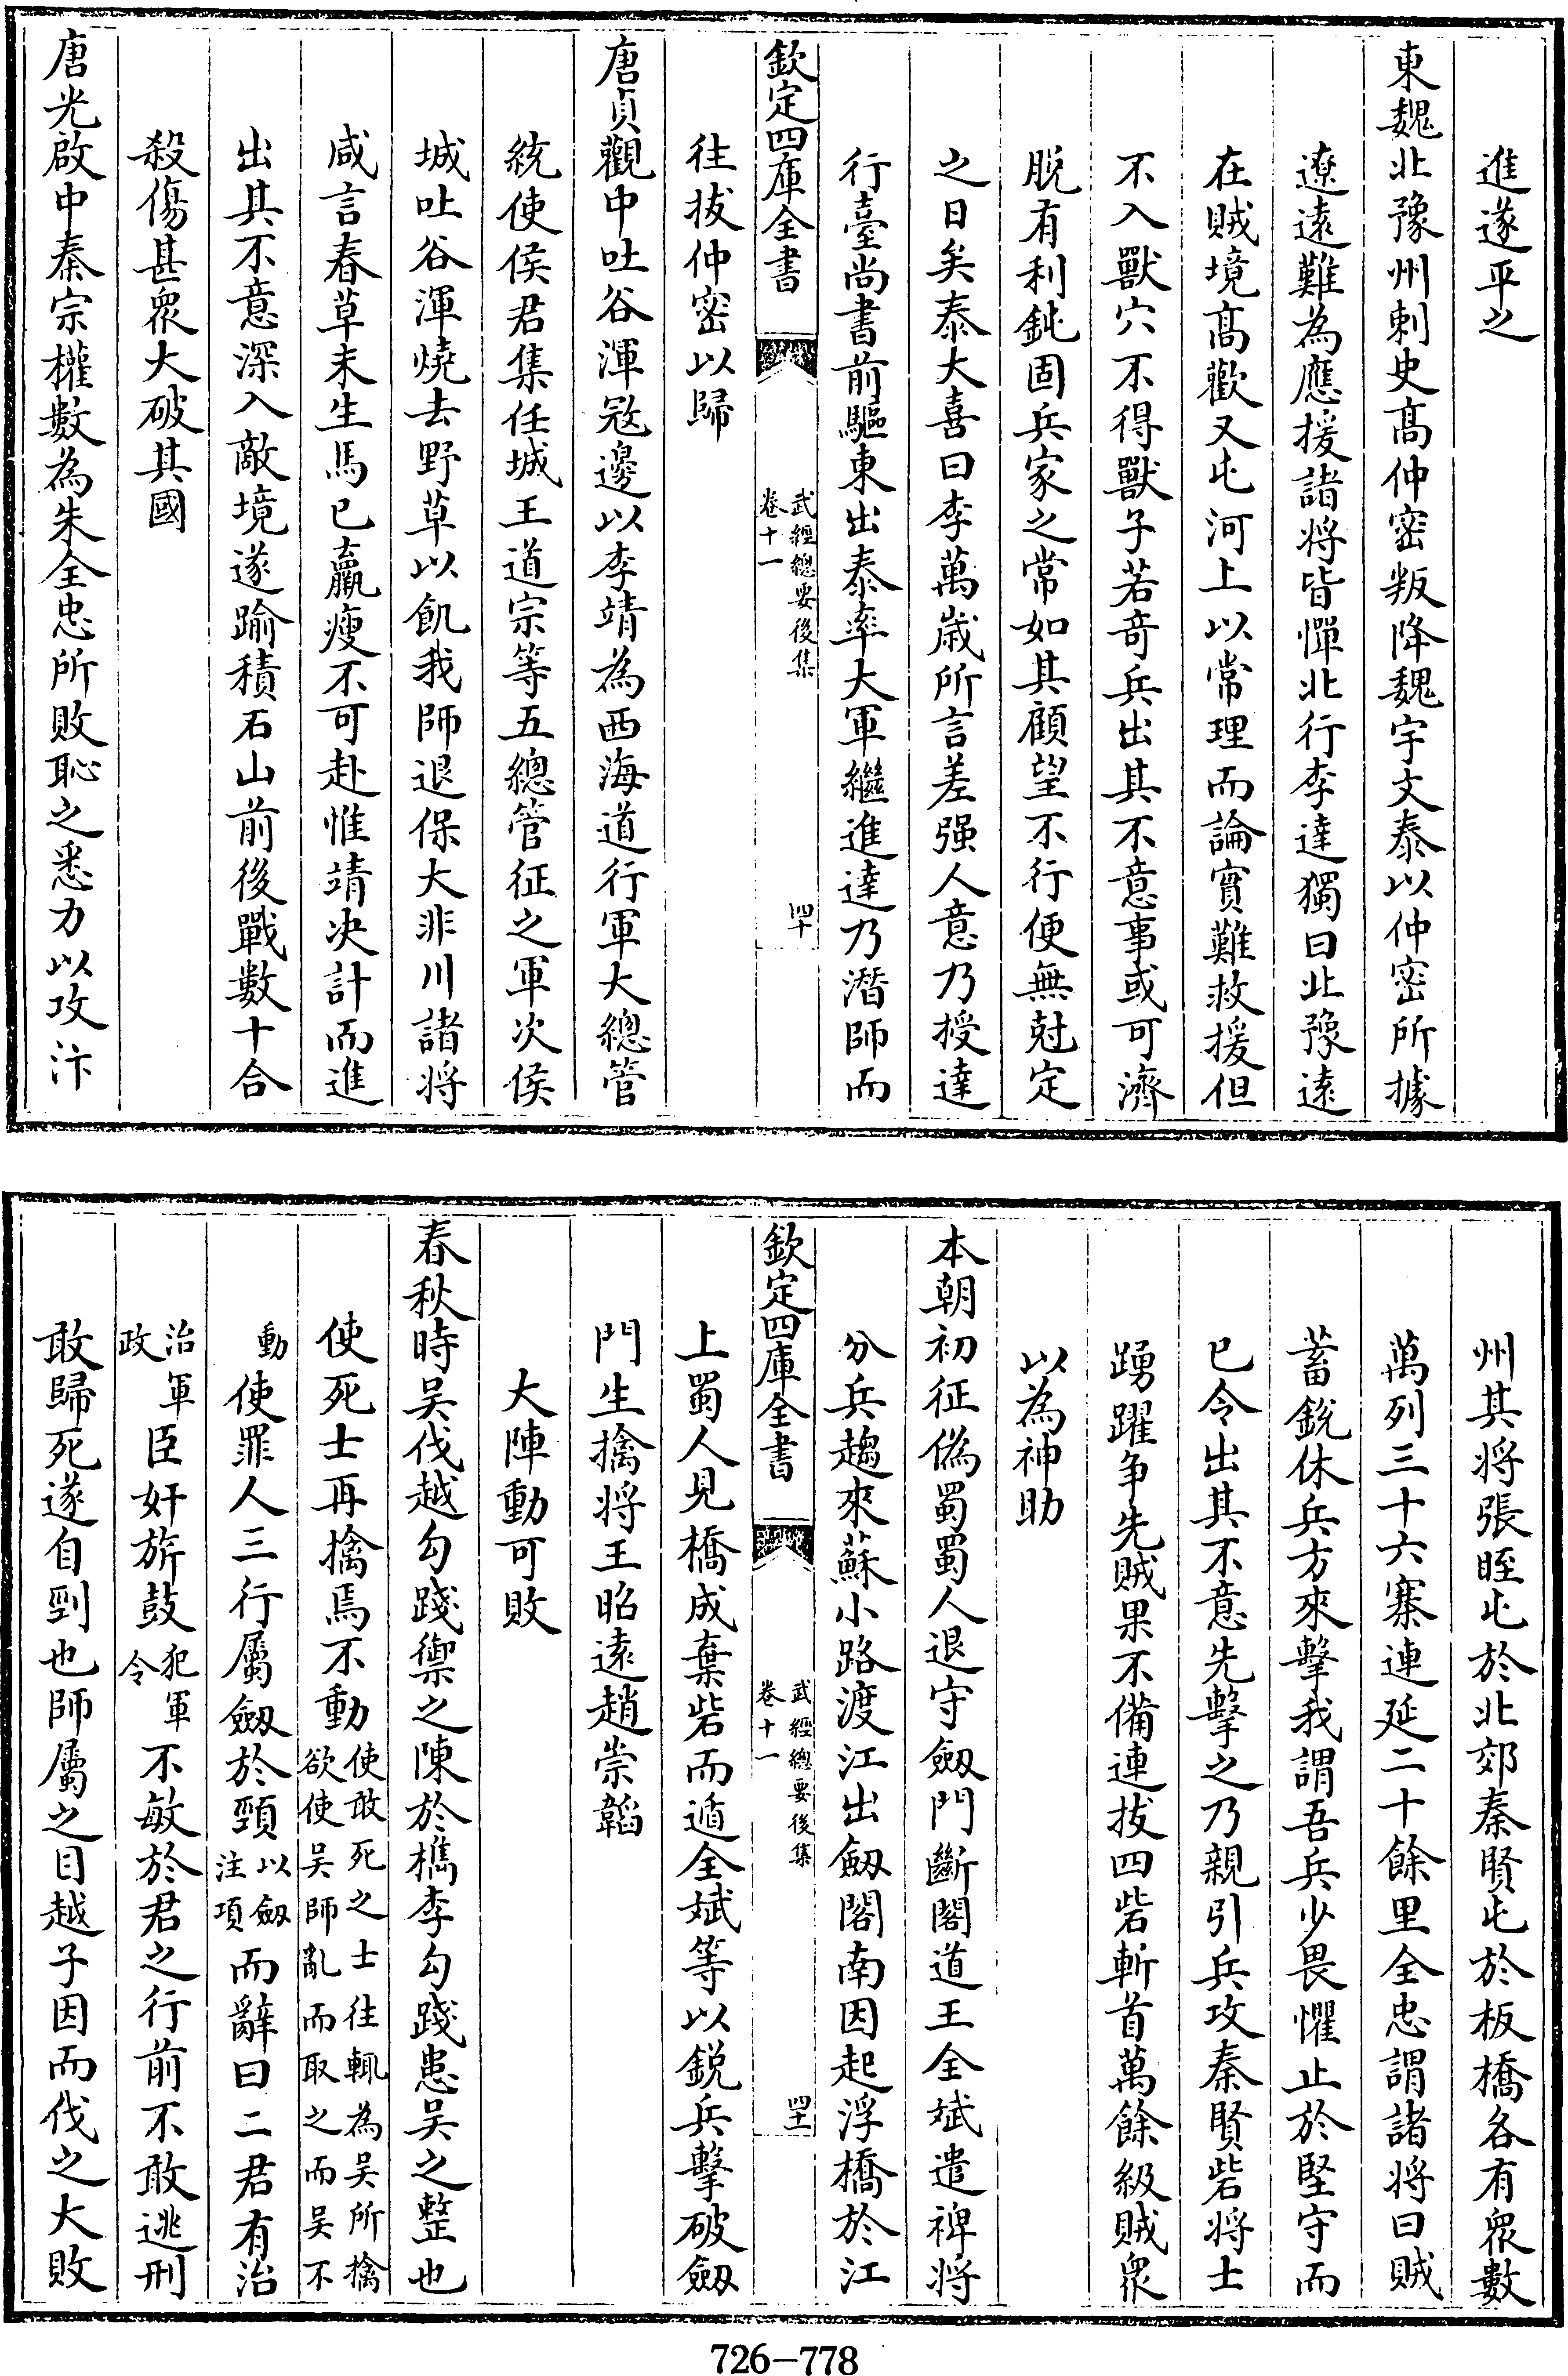 進遂平之
東魏北豫州刺史髙仲密叛降魏宇文泰以仲密所據
遼遠難為應援諸将皆憚北行李達獨曰北豫遠
在賊境髙歡又屯河上以常理而論實難救援但
不入獸穴不得獸子若竒兵出其不意事或可濟
脱有利鈍固兵家之常如其顧望不行便無尅定
之日矣泰大喜曰李萬歳所言差强人意乃授達
行臺尚書前驅東出泰率大軍繼進達乃潛師而
欽定四庫全書
武經總要後集
卷十一
四十
往拔仲密以歸
唐貞觀中吐谷渾寇邊以李靖為西海道行軍大總管
統使侯君集任城王道宗等五總管征之軍次侯
城吐谷渾燒去野草以飢我師退保大非川諸将
咸言春草未生馬已羸瘦不可赴惟靖决計而進
出其不意深入敵境遂踰積石山前後戰數十合
殺傷甚衆大破其國
唐光啟中秦宗權數為朱全忠所敗恥之悉力以攻汴
州其将張晊屯於北郊秦賢屯於板橋各有衆數
萬列三十六寨連延二十餘里全忠謂諸将曰賊
蓄鋭休兵方來擊我謂吾兵少畏懼止於堅守而
已令出其不意先擊之乃親引兵攻秦賢砦将士
踴躍争先賊果不備連拔四砦斬首萬餘級賊衆
以為神助
本朝初征偽蜀蜀人退守劔門斷閣道王全斌遣禆将
分兵趨來蘇小路渡江出劔閣南因起浮橋於江
欽定四庫全書
武經總要後集
卷十一
四十一
上蜀人見橋成棄砦而遁全斌等以鋭兵擊破劔
門生擒将王昭遠趙崇韜
大陣動可敗
春秋時吴伐越勾踐禦之陳於檇李勾踐患吴之整也
使死士再擒焉不動使敢死之士往輒為吴所擒欲使吴師亂而取之而吴不
動使罪人三行屬劔於頸以劔注項而辭曰二君有治
治軍政臣奸旂鼓犯軍令不敏於君之行前不敢逃刑
敢歸死遂自剄也師屬之目越子因而伐之大敗
726-778